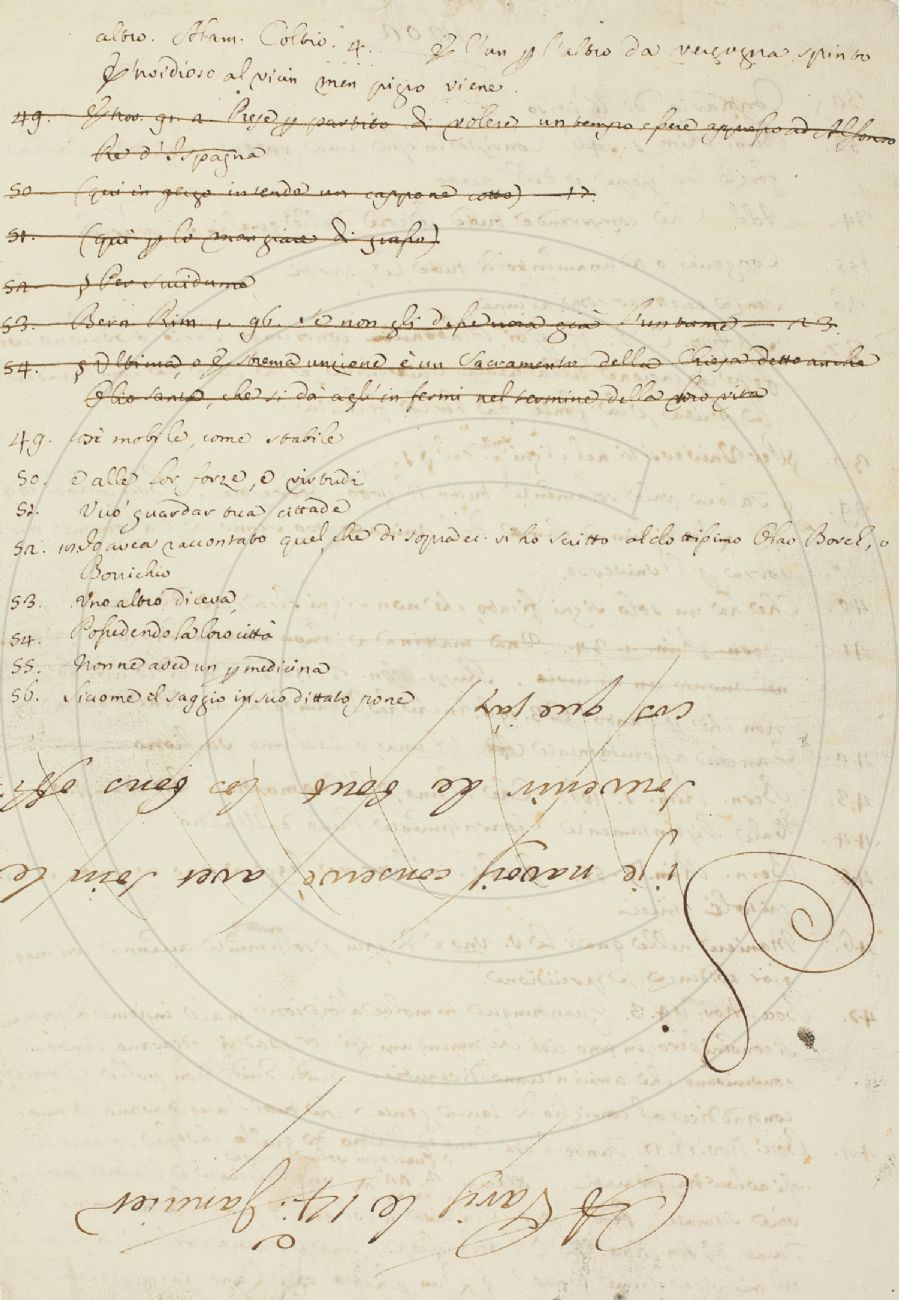 altro. Alam. Coltiv. 4. E l'un p l'altro da vergogna spinto
E 'noidioso al vicin men pigro viene.
49. gr. 2. Prese p partito di volere un tempo essere appresso ad Alfonso
Re d'Ispagna
50. (qui in gergo intende un cappone cotto) — 17.
51. (qui p lo mangiare di grasso)
52. § Per suiduma
53. Bern. Rim. 1. 96. Se non gli desse nora già l'untume — 23.
54. § Ultima, o Estrema unzione è un Sacramento della Chiesa detto anche
Olio santo, che si dà agl' infermi nel termine della loro vita
49. così mobile, come stabile
50. e alle lor forze, e virtudi
51. Vuo' guardar tua cittade
52. avea raccontato quel, che di sopra ec. vi ho scritto al dottissimo Olao Borsch, o
Borrichio
53. Uno altro diceva,
54. Possedendo la loro città
55. Non ne avea un p medicina
56. Siccome el saggio in suo dittato pone
ces que jay
souvenir de tout les biens
si je navois conservé avec soin le
A Paris le 14. Janvier